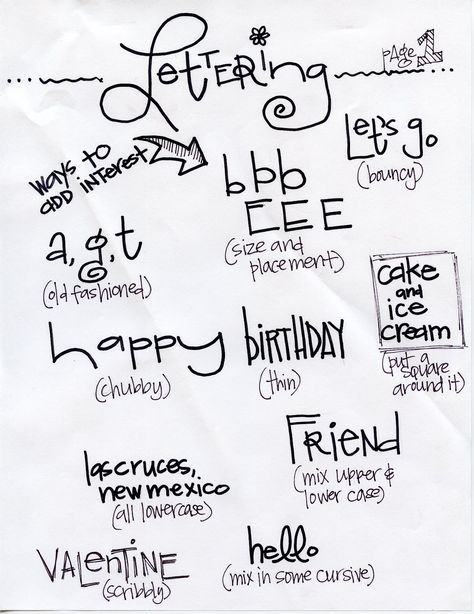 LetTERing
PAge 1
Let's go
(bouncy)
WAYS TO
ADD INTEREST
bbb
EEE
(size and
placement)
a, g, t
(old fashioned)
cake
and
ice
cream
(put a
square
around it)
happy BIRTHDAY
(chubby) (thin)
FRiend
(mix upper &
lower case)
las cruces,
new mexico
(all lowercase)
VALeNTINE
(scribbly)
hello
(mix in some cursive)